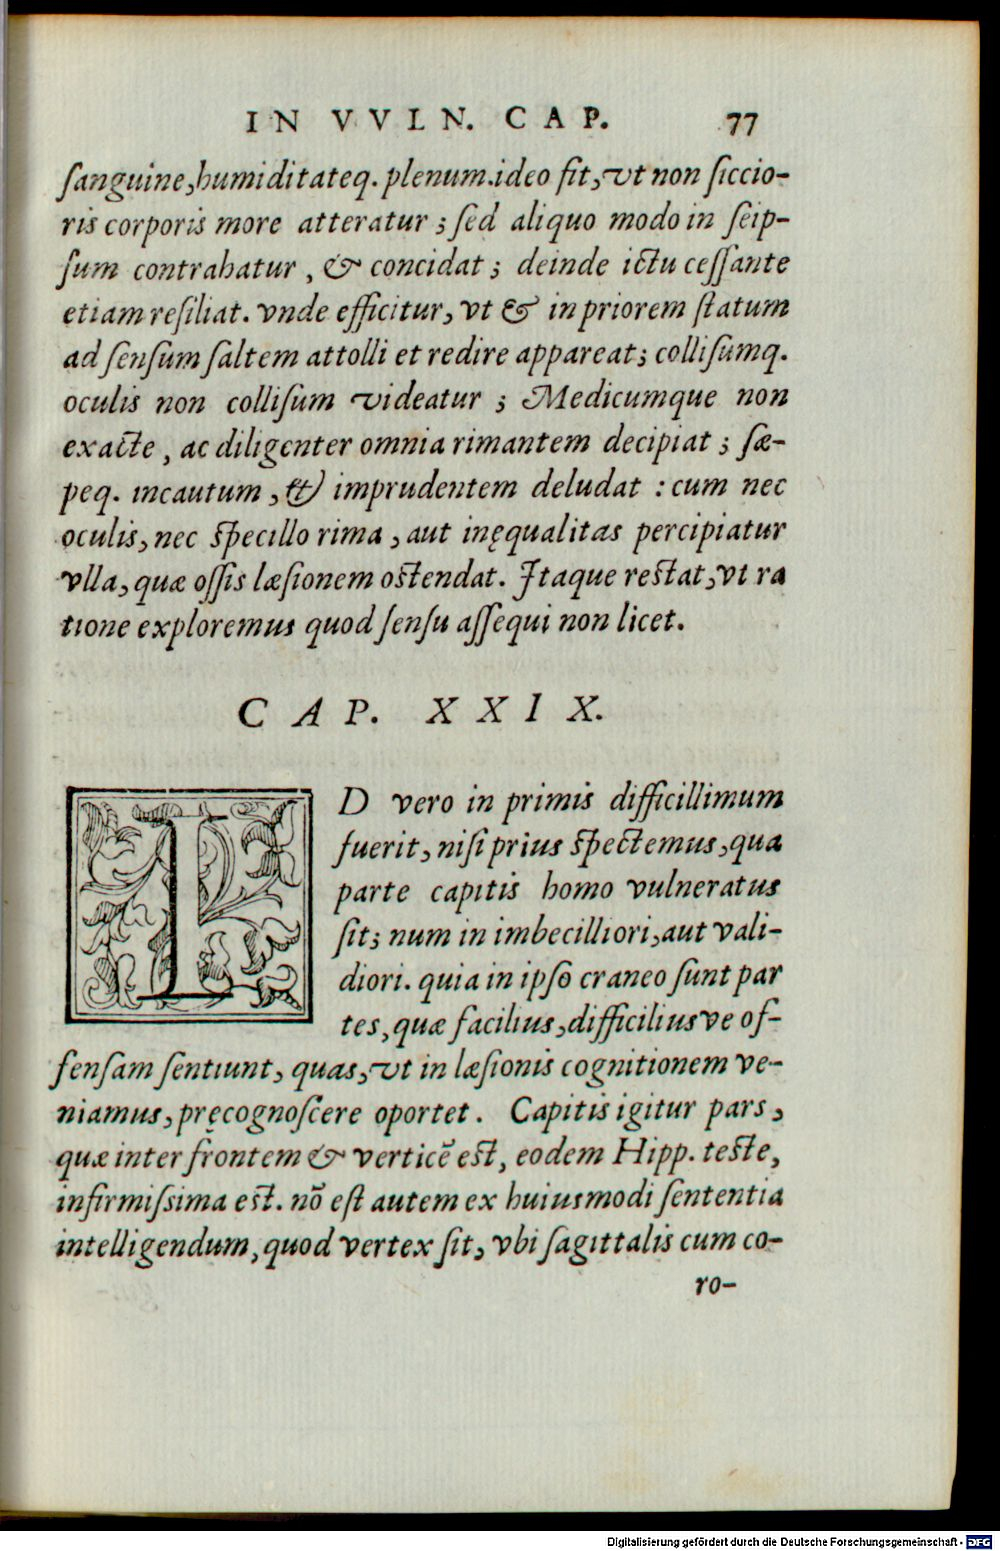 IN VVLN. CAP. 77
sanguine, humiditateq. plenum. ideo fit, vt non siccio-
ris corporis more atteratur; sed aliquo modo in seip-
sum contrahatur, & concidat; deinde ictu cessante
etiam resiliat. vnde efficitur, vt & in priorem statum
ad sensum saltem attolli et redire appareat; collisumq.
oculis non collisum videatur; Medicumque non
exacte, ac diligenter omnia rimantem decipiat; sæ-
peq. incautum, & imprudentem deludat: cum nec
oculis, nec specillo rima, aut inęqualitas percipiatur
vlla, quæ ossis læsionem ostendat. Itaque restat, vt ra
tione exploremus quod sensu assequi non licet.
CAP. XXIX.
ID vero in primis difficillimum
fuerit, nisi prius spectemus, qua
parte capitis homo vulneratus
sit; num in imbecilliori, aut vali-
diori. quia in ipso craneo sunt par
tes, quæ facilius, difficiliusve of-
fensam sentiunt, quas, vt in læsionis cognitionem ve-
niamus, pręcognoscere oportet. Capitis igitur pars,
quæ inter frontem & verticē est, eodem Hipp. teste,
infirmissima est. nō est autem ex huiusmodi sententia
intelligendum, quod vertex sit, vbi sagittalis cum co-
ro-
Digitalisierung gefördert durch die Deutsche Forschungsgemeinschaft - DFG